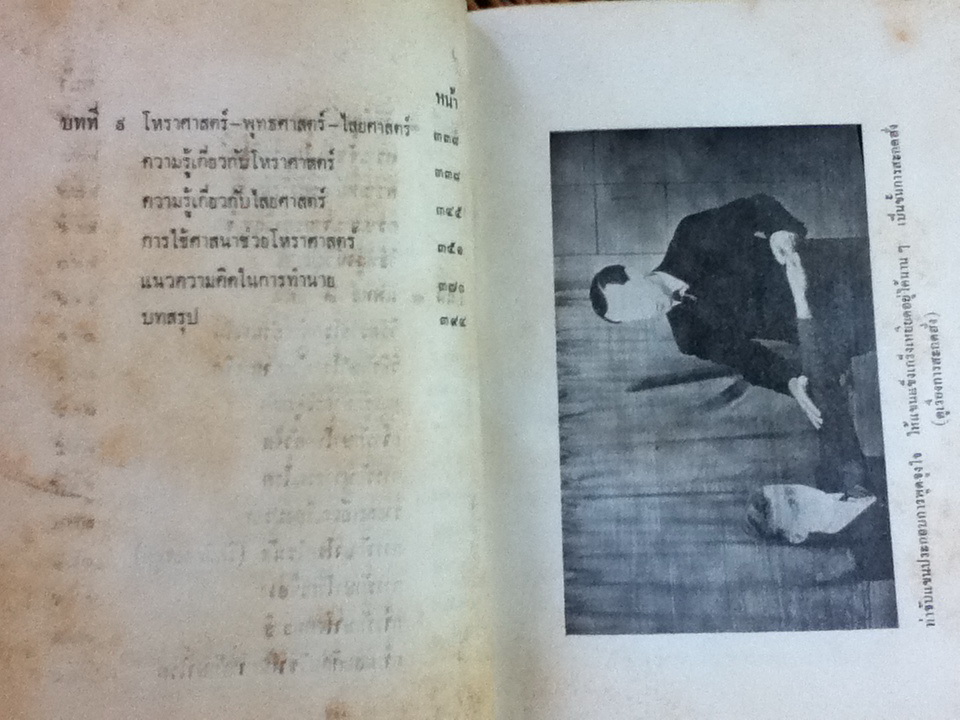 หน้า
บทที่ ๘ โหราศาสตร์-พุทธศาสตร์-ไสยศาสตร์ ๓๓๘
ความรู้เกี่ยวกับโหราศาสตร์ ๓๓๘
ความรู้เกี่ยวกับไสยศาสตร์ ๓๔๕
การใช้ศาสนาช่วยโหราศาสตร์ ๓๕๑
แนวความคิดในการทำนาย ๓๗๑
บทสรุป ๓๙๔
ท่าจับแขนประกอบการพูดจูงใจ ให้แขนแข็งเกร็งเหยียดอยู่ได้นาน ๆ เป็นขั้นการสะกดสั่ง
(ดูเรื่องการสะกดสั่ง)